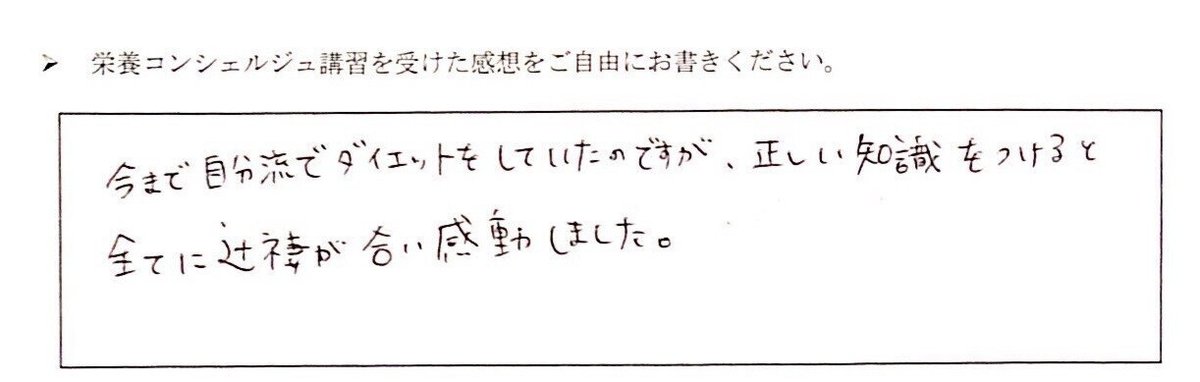 ➤ 栄養コンシェルジュ講習を受けた感想をご自由にお書きください。
今まで自分流でダイエットをしていたのですが、正しい知識をつけると
全てに辻褄が合い感動しました。